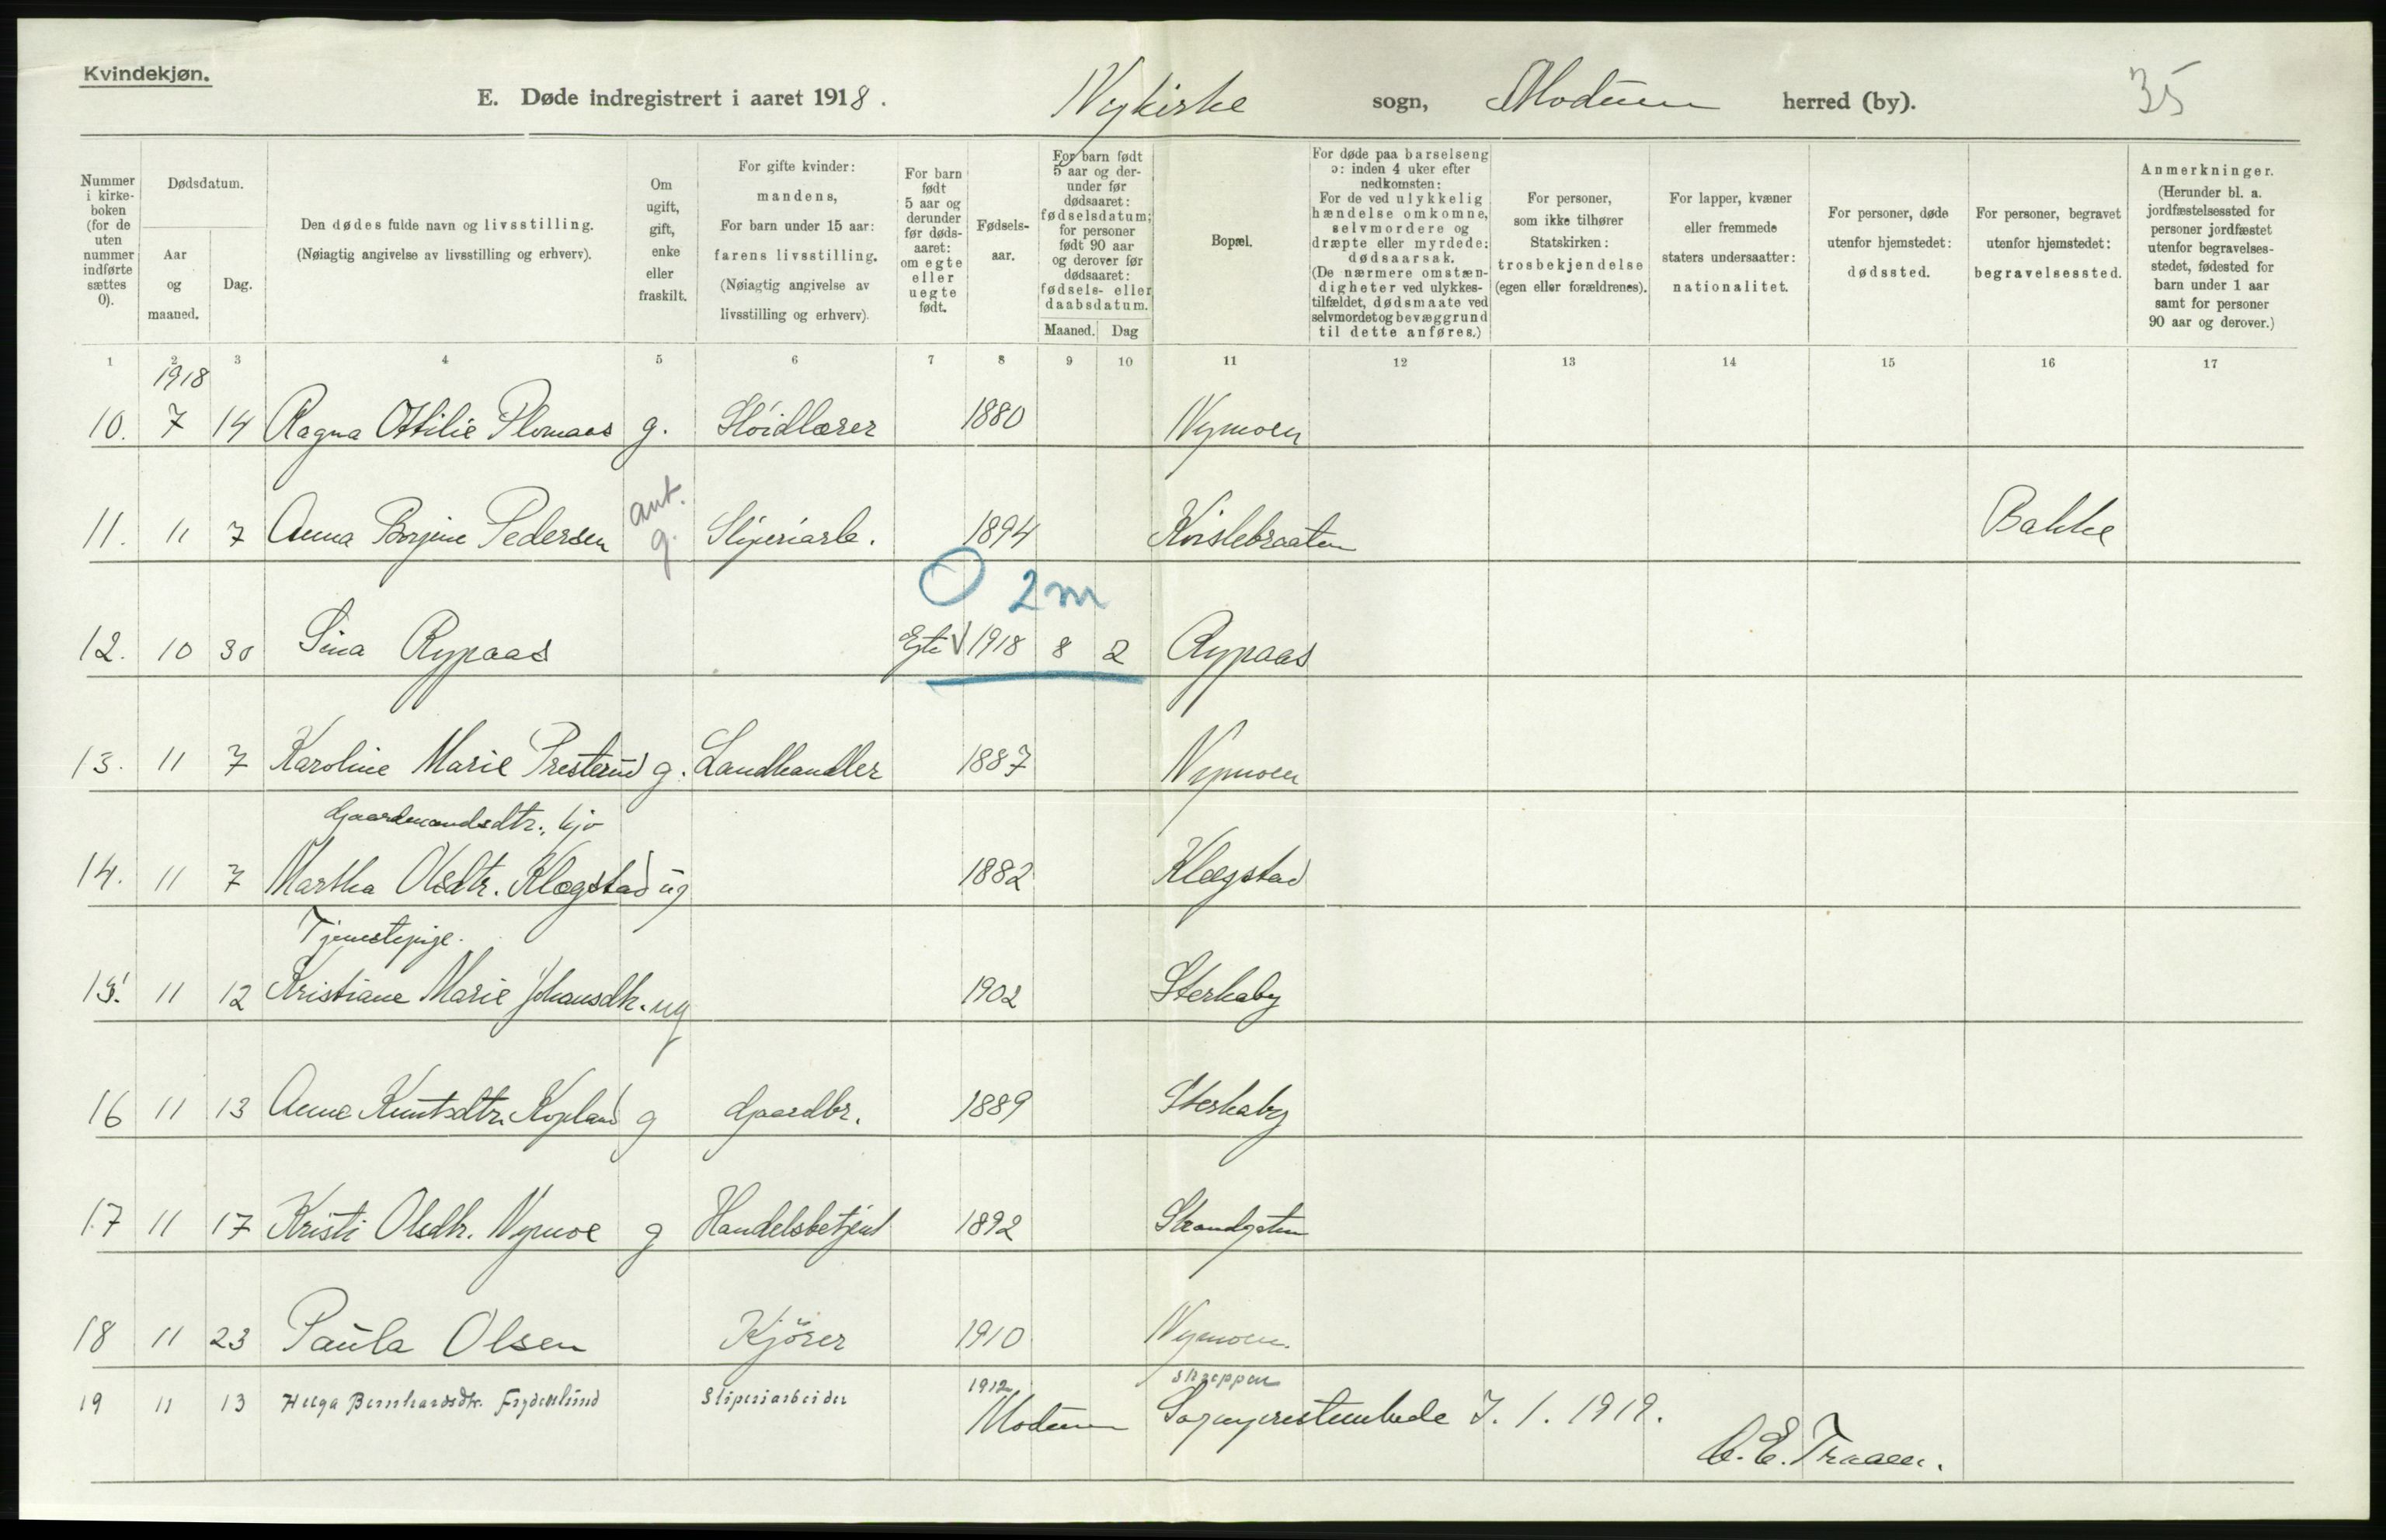 Kvindekjøn.
E. Døde indregistrert i aaret 1918. Nykirke sogn, Modum herred (by). 35
Nummer i kirke-boken (for de uten nummer indførte sættes 0).
Dødsdatum.
Aar og maaned.
Dag.
Den dødes fulde navn og livsstilling.
(Nøiagtig angivelse av livsstilling og erhverv).
Om ugift, gift, enke eller fraskilt.
For gifte kvinder: mandens,
For barn under 15 aar: farens livsstilling.
(Nøiagtig angivelse av livsstilling og erhverv).
For barn født 5 aar og derunder før døds-aaret: om egte eller uegte født.
Fødsels-aar.
For barn født 5 aar og der-under før dødsaaret: fødselsdatum; for personer født 90 aar og derover før dødsaaret: fødsels- eller daabsdatum.
Maaned. Dag
Bopæl.
For døde paa barselseng ɔ: inden 4 uker efter nedkomsten:
For de ved ulykkelig hændelse omkomne, selvmordere og dræpte eller myrdede: dødsaarsak.
(De nærmere omstæn-digheter ved ulykkes-tilfældet, dødsmaate ved selvmordet og bevæggrund til dette anføres.)
For personer, som ikke tilhører Statskirken: trosbekjendelse (egen eller forældrenes).
For lapper, kvæner eller fremmede staters undersaatter: nationalitet.
For personer, døde utenfor hjemstedet: dødssted.
For personer, begravet utenfor hjemstedet: begravelsessted.
Anmerkninger.
(Herunder bl. a. jordfæstelsessted for personer jordfæstet utenfor begravelses-stedet, fødested for barn under 1 aar samt for personer 90 aar og derover.)
1 2 3 4 5 6 7 8 9 10 11 12 13 14 15 16 17
1918
10. 7 14 Ragna Ottilie Plomaas g. Sløidlærer 1880 Nymoen
ant.
11. 11 7 Anna Borgine Pedersen g. Sliperiarb. 1894 Kvislebraaten Bakke
O 2m
12. 10 30 Sina Rypaas Egte V 1918 8 2 Rypaas
13. 11 7 Karoline Marie Presterud g. Landhandler 1887 Nymoen
Gaardmandsdtr., hjv
14. 11 7 Martha Olsdtr. Klægstad ug 1882 Klægstad
Tjenestepige.
15. 11 12 Kristiane Marie Johansdtr. ug 1902 Sterkaby
16 11 13 Anne Knutsdtr. Kopland g Gaardbr. 1889 Sterkaby
17 11 17 Kristi Olsdtr. Nymoe g Handelsbetjent 1892 Strandgaten
18 11 23 Paula Olsen Kjører 1910 Nymoen.
19 11 13 Helga Bernhardsdtr. Frydenlund Sliperiarbeider 1912 Skreppen
Modum Sogneprestembede 7. 1. 1919.
C. E. Traaen.